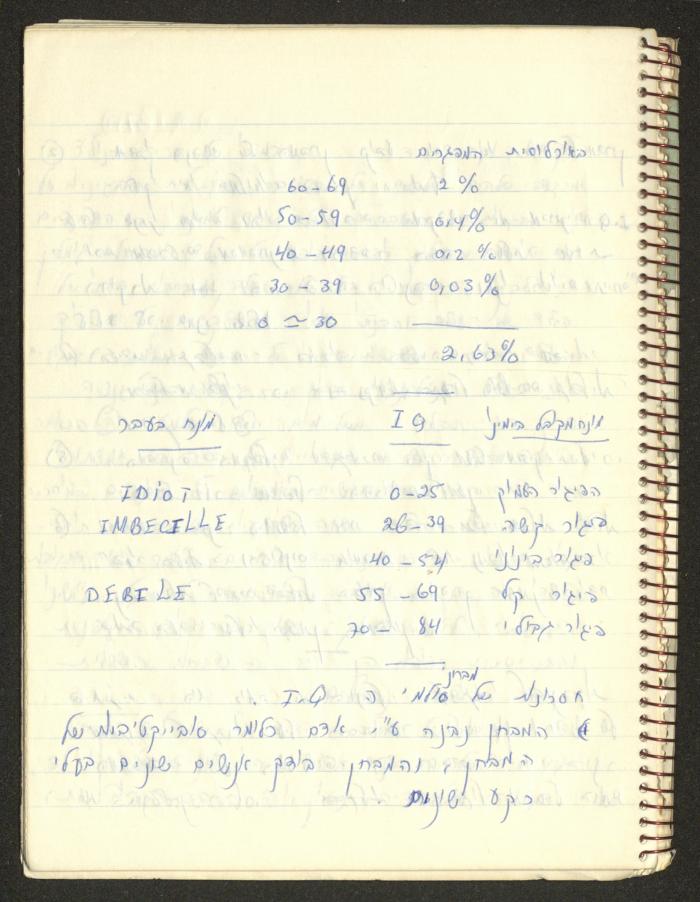 באוכלוסית המפגרים
2% 60-69
0,4% 50-59
0,2% 40-49
0,03% 30-39
0 ≃ 30
2,63%
מונח מקובל בימינו IQ מונח בעבר
הפיגור העמוק 0-25 IDiOT
פיגור קשה 26-39 IMBECILLE
פיגור בינוני 40-54
פיגור קל 55-69 DEBILE
פיגור גבולי 70-84
חסרונות של סולמי מבחן ה I.Q.
המבחן נבנה ע"י אדם כלומר סובייקטיבית של
המבחן, והמבחן בודק אנשים שונים בעלי
רקע שונות